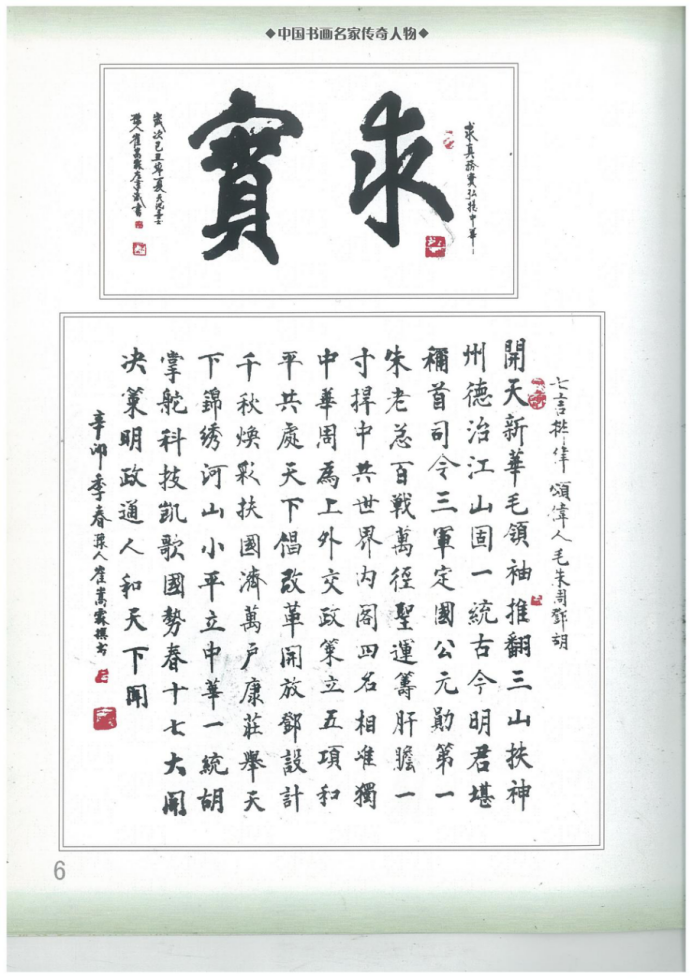 ◆中国书画名家传奇人物◆
求真務實弘揚中華
求實
歲次己丑年夏
琛人崔嵩霖書
七言排律 頌偉人毛朱周鄧胡
開天新華毛領袖推翻三山扶神
州德治江山固一統古今明君堪
稱首司令三軍定國公元勛第一
朱老总百戰萬徑聖運籌肝膽一
寸捍中共世界內閣四名相唯獨
中華周為上外交政策立五項和
平共處天下倡改革開放鄧設計
千秋煥彩扶國濟萬户康莊舉天
下錦绣河山小平立中華一統胡
掌舵科技凯歌國勢春十七大開
决策明政通人和天下開
辛卯季春琛人崔嵩霖撰书
6